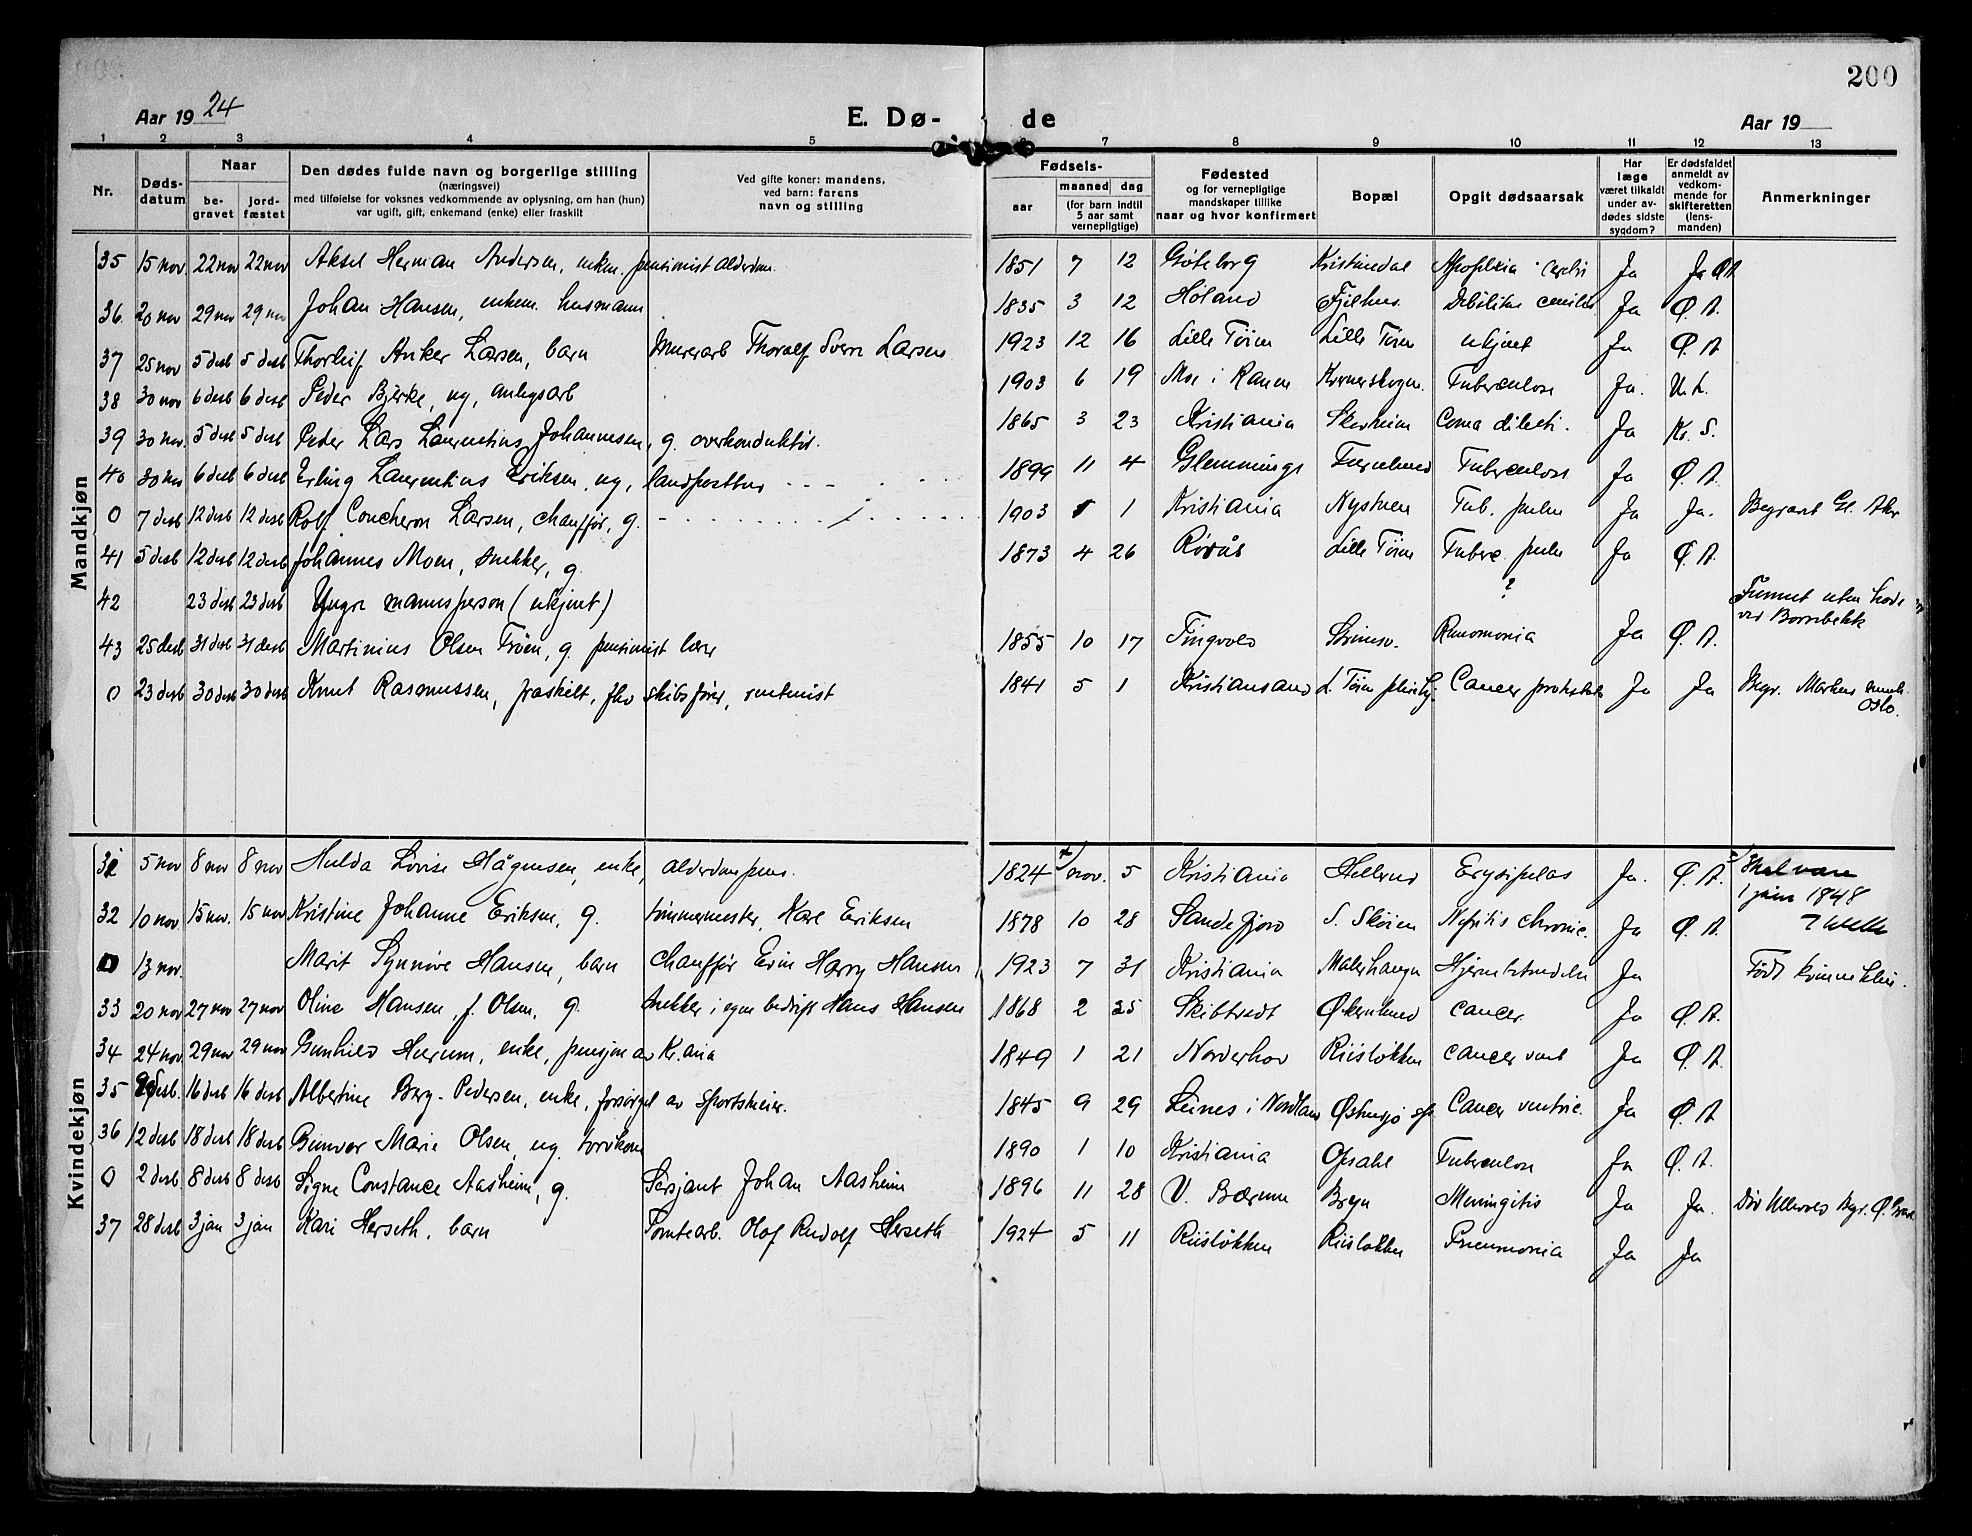 200
Aar 1924 E. Dø- de Aar 19
1 2 3 4 5 7 8 9 10 11 12 13
Nr. Dødsdatum Naar begravet jordfæstet Den dødes fulde navn og borgerlige stilling (næringsvei) med tilføielse for voksnes vedkommende av oplysning, om han (hun) var ugift, gift, enkemand (enke) eller fraskilt Ved gifte koner: mandens, ved barn: farens navn og stilling Fødsels- aar maaned dag (for barn indtil 5 aar samt vernepligtige) Fødested og for vernepligtige mandskaper tillike naar og hvor konfirmert Bopæl Opgit dødsaarsak Har læge været tilkaldt under avdødes sidste sygdom? Er dødsfaldet anmeldt av vedkommende for skifteretten (lensmanden) Anmerkninger
Mandkjøn
35 15 nov 22 nov 22 nov Aksel Herman Andersen, enkem. pensionist alderdom. 1851 7 12 Göteborg Kristinedal Apoplexia cerebri Ja Ja Ø.A.
36. 20 nov 29 nov 29 nov Johan Hansen, enkem. husmann 1835 3 12 Høland Fjelhus. Debilitas Ja Ø. A.
37 25 nov 5 desb 5 desb Thorleif Anker Larsen, barn Murerarb Thoralf Sverr Larsen 1923 12 16 Lille Tøien Lille Tøien ukjent Ja Ø. A
38 30 nov 6 desb 6 desb Peder Bjerke, ug, anlegsarb 1903 6 19 Mo i Ranen Kvernerskogen. Tuberculose Ja. U. L.
39 30 nov. 5 desb 5 desb Peder Lars Laurentius Johannesen, g. overkonduktør. 1865 3 23 Kristiania Skovheim Coma diabeti. Ja Kr. S.
40 30 nov 6 desb 6 desb Erling Laurentius Eriksen, ug, landpostbud 1899 11 4 Glemminge Furulund Tuberculose Ja Ø. A.
0 7 desb 12 desb 12 desb Rolf Concheron Larsen, chauffør, g. 1903 1 Kristiania Nystuen Tub. pulm Ja Ja. Begravet Gl. Aker
41 5 desb 12 desb 12 desb Johannes Moen, snekker, g. 1873 4 26 Rørås Lille Tøien Tuberc. pulm Ja Ø. A.
42 23 desb 23 desb Yngre mannsperson (ukjent) ? Funnet uten hode
ved
43 25 desb 31 desb 31 desb Martinius Olsen Trøen, g. pensionist lærer 1855 10 17 Tingvold Ja Ø. A.
0 23 desb 30 desb 30 desb Knut Rasmussen, fraskilt, fhv skibsfører, rentenist 1841 5 1 Kristiansand L. Tøien pleiehj. Cancer prostatae Ja Ja Begr. Markus menh.
Oslo.
Kvindekjøn
31 5 nov 8 nov 8 nov Hulda Lovise Hågensen, enke, alderdomspens. 1824 nov. 5 Kristiania Hellerud Erysipelas Ja. Ø. A. Skal være
1 juni 1848
32 10 nov. 15 nov. 15 nov Kristine Johanne Eriksen, g. tømmermester, Karl Eriksen 1878 10 28 Sandefjord S. Skøien Nefritis chronic. Ja Ø. A.
0 13 nov. Marit Synnøve Hansen, barn chauffør Harry Hansen 1923 7 31 Kristiania Malerhaugen Hjernebetændelse Ja Født kvinneklini.
33 20 nov 27 nov 27 nov Olina Hansen, f. Olsen, g. Snekker i egen bedrift Hans Hansen 1868 2 25 Skibtvedt Økernlund cancer Ja Ø. A.
34 24 nov 29 nov 29 nov Gunhild Hurum, enke, pensjon av Kr.ania 1849 1 21 Norderhov Riisløkken cancer vent Ja Ø. A.
35 desb. 16 desb 16 desb Albertine Berg-Pedersen, enke, forsørget av sportsmeier. 1845 9 29 Leines i Nordland Østensjø Cancer ventric. Ja Ø. A
36 12 desb 18 desb 18 desb Gunvor Marie Olsen, ug. torvkone 1890 1 10 Kristiania Opsahl Tuberculose Ja Ø. A.
0 2 desb. 8 desb 8 desb. Signe Constance Aasheim, g. Sersjant Johan Aasheim 1896 11 28 V. Bærum Bryn Meningitis Ja Ja. Død Ullevold Begr. Ø.
37 28 desb 3 jan 3 jan Kari Herseth, barn Tomtearb. Olof Rudolf Herseth 1924 5 11 Riisløkken Riisløkken Pneumonia Ja Ja